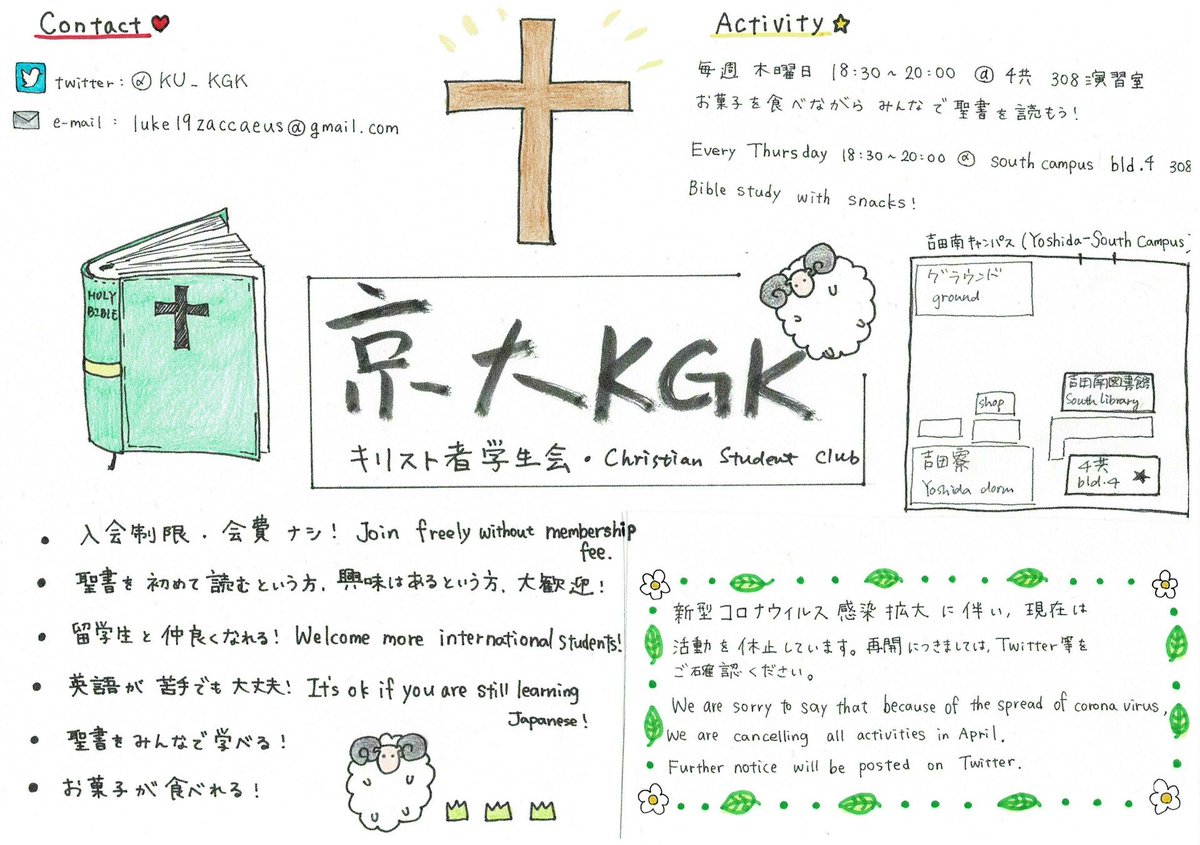 Contact
twitter: @ KU_KGK
e-mail : luke19zaccaeus@gmail.com
Activity
毎週 木曜日 18:30~20:00 @ 4共 308演習室
お菓子を食べながら みんなで聖書を読もう!
Every Thursday 18:30~20:00 @ south campus bld.4 308
Bible study with snacks!
HOLY
BIBLE
京大KGK
キリスト者学生会・Christian Student Club
吉田南キャンパス (Yoshida-South Campus)
グラウンド
ground
shop
吉田南図書館
South library
吉田寮
Yoshida dorm
4共
bld.4
• 入会制限・会費 ナシ! Join freely without membership
fee.
• 聖書を初めて読むという方、興味はあるという方、大歓迎!
• 留学生と仲良くなれる! Welcome more international students!
• 英語が苦手でも大丈夫! It's ok if you are still learning
Japanese!
• 聖書をみんなで学べる!
• お菓子が食べれる!
新型コロナウイルス感染拡大に伴い, 現在は
活動を休止しています。再開につきましては, Twitter等を
ご確認ください。
We are sorry to say that because of the spread of corona virus,
we are cancelling all activities in April.
Further notice will be posted on Twitter.